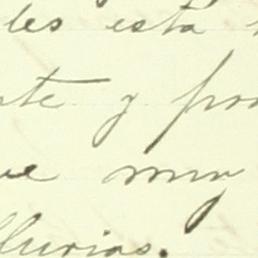 les esta
te y pro
ve muy
lluvias.